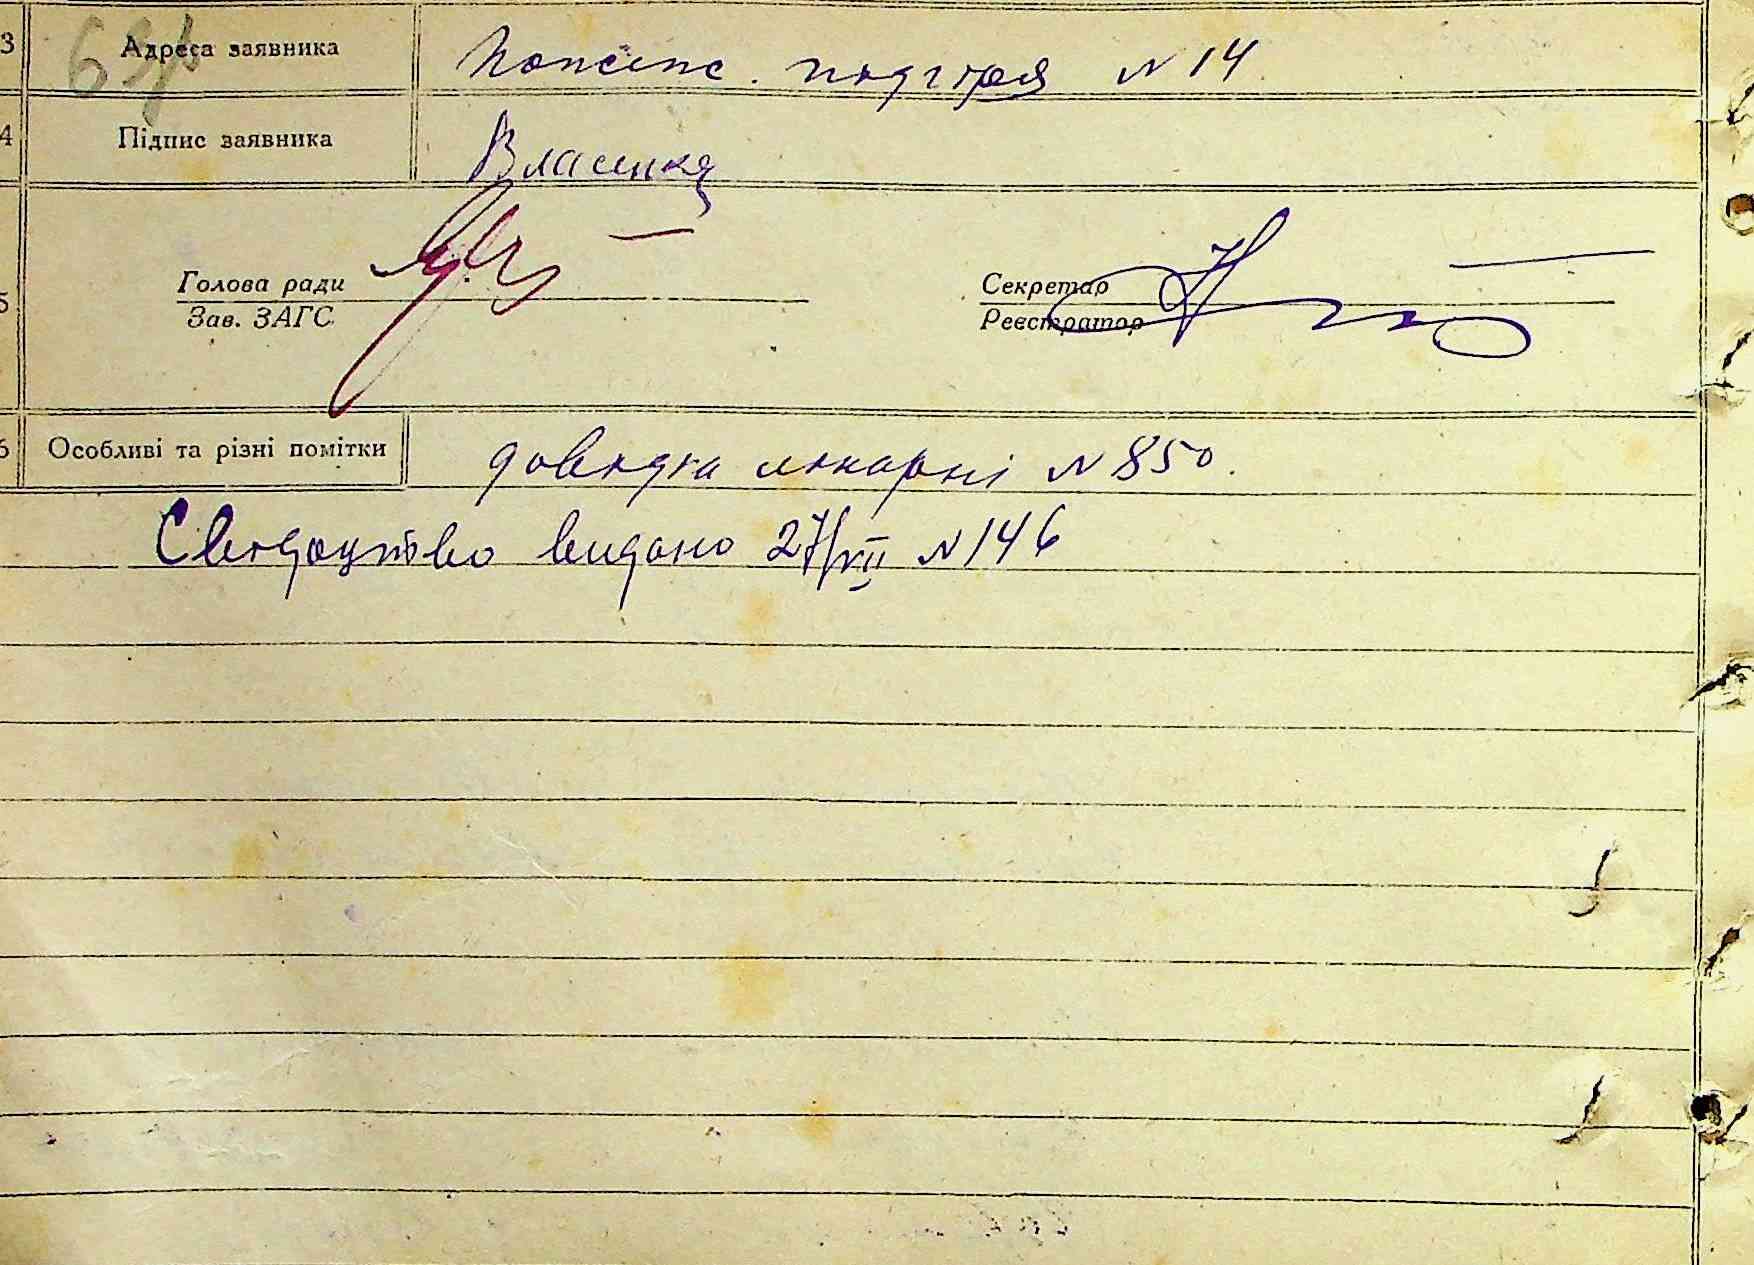 3 Адреса заявника № 14
4 Підпис заявника Власенко
Голова ради
Зав. ЗАГС
Секретар
Реєстратор
5
6 Особливі та різні помітки довідка лікарні № 850.
Свідоцтво видано 27/VII № 146